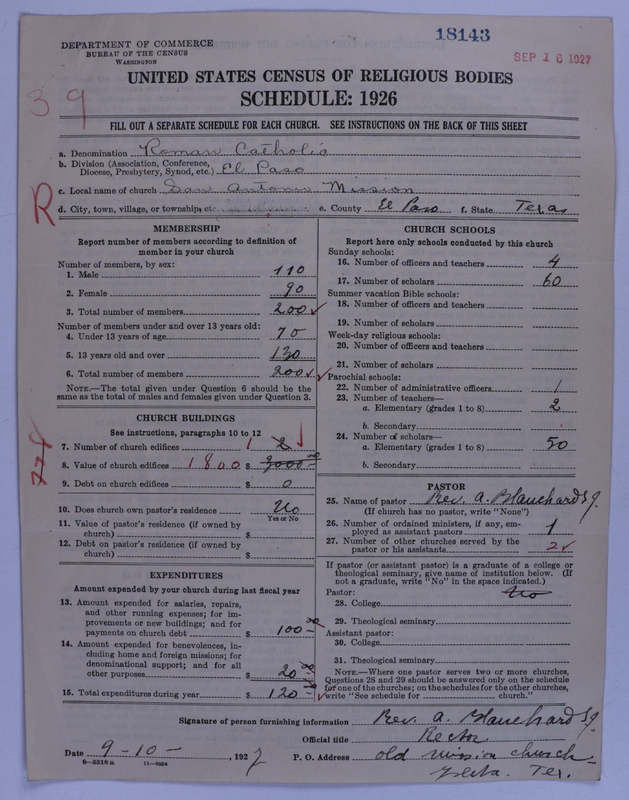 18143
SEP 16 1927
DEPARTMENT OF COMMERCE
BUREAU OF THE CENSUS
WASHINGTON
UNITED STATES CENSUS OF RELIGIOUS BODIES
SCHEDULE: 1926
39
FILL OUT A SEPARATE SCHEDULE FOR EACH CHURCH. SEE INSTRUCTIONS ON THE BACK OF THIS SHEET
a. Denomination Roman Catholic
b. Division (Association, Conference, Diocese, Presbytery, Synod, etc.) El Paso
c. Local name of church San Antonio Mission
R
d. City, town, village, or township, etc. e. County El Paso f. State Texas
MEMBERSHIP
Report number of members according to definition of member in your church
Number of members, by sex:
1. Male 110
2. Female 90
3. Total number of members 200
Number of members under and over 13 years old:
4. Under 13 years of age 70
5. 13 years old and over 130
6. Total number of members 200
NOTE.—The total given under Question 6 should be the same as the total of males and females given under Question 3.
CHURCH BUILDINGS
See instructions, paragraphs 10 to 12
7. Number of church edifices 1 2
8. Value of church edifices 1800 $ 3000.00
9. Debt on church edifices $ 0
10. Does church own pastor's residence No
Yes or No
11. Value of pastor's residence (if owned by church) $
12. Debt on pastor's residence (if owned by church) $
EXPENDITURES
Amount expended by your church during last fiscal year
13. Amount expended for salaries, repairs, and other running expenses; for improvements or new buildings; and for payments on church debt $ 100.00
14. Amount expended for benevolences, including home and foreign missions; for denominational support; and for all other purposes $ 20.00
15. Total expenditures during year $ 120.00
CHURCH SCHOOLS
Report here only schools conducted by this church
Sunday schools:
16. Number of officers and teachers 4
17. Number of scholars 60
Summer vacation Bible schools:
18. Number of officers and teachers
19. Number of scholars
Week-day religious schools:
20. Number of officers and teachers
21. Number of scholars
Parochial schools:
22. Number of administrative officers 1
23. Number of teachers—
a. Elementary (grades 1 to 8) 2
b. Secondary
24. Number of scholars—
a. Elementary (grades 1 to 8) 50
b. Secondary
PASTOR
25. Name of pastor Rev. A. Blanchard S.J.
(If church has no pastor, write "None")
26. Number of ordained ministers, if any, employed as assistant pastors 1
27. Number of other churches served by the pastor or his assistants 2
If pastor (or assistant pastor) is a graduate of a college or theological seminary, give name of institution below. (If not a graduate, write "No" in the space indicated.)
Pastor: No
28. College
29. Theological seminary
Assistant pastor:
30. College
31. Theological seminary
NOTE.—Where one pastor serves two or more churches, Questions 28 and 29 should be answered only on the schedule for one of the churches; on the schedules for the other churches, write "See schedule for church."
Signature of person furnishing information Rev. A. Blanchard S.J.
Official title Rector
Date 9-10-, 1927 P. O. Address old mission church
Ysleta. Tex.
8—5518a 11—9264